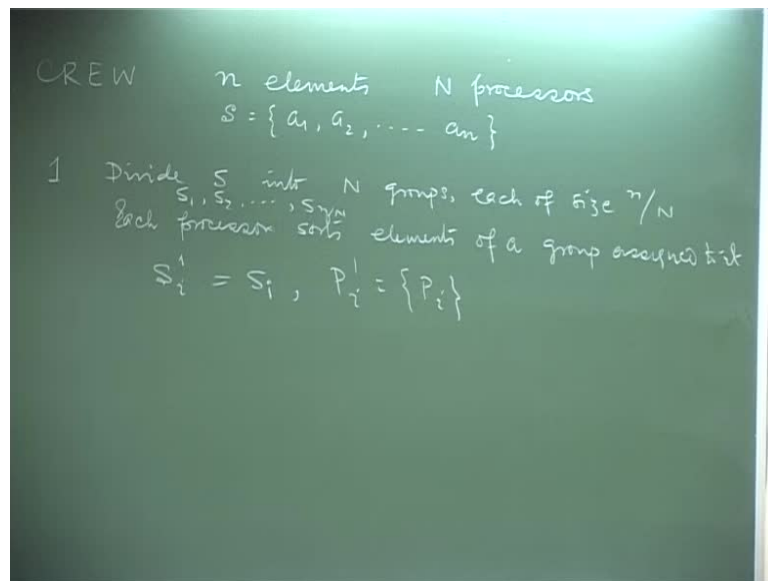 CREW n elements N processors
S = { a1, a2, ..... an }
1 Divide S into N groups, each of size n/N
S1, S2, ..., Sn/N
Each processor sorts elements of a group assigned to it
S_i^1 = S_i, P_i^1 = {P_i}